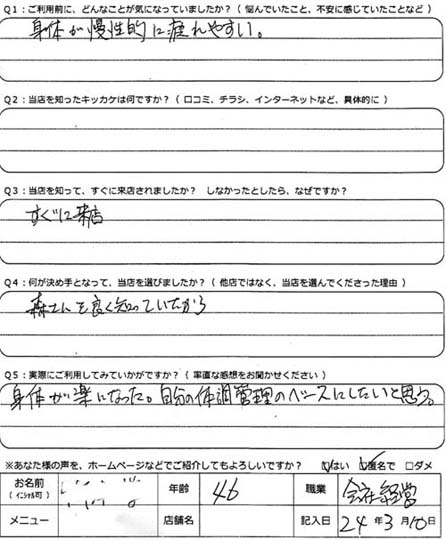 Q1：ご利用前に、どんなことが気になっていましたか？（ 悩んでいたこと、不安に感じていたことなど ）
身体が慢性的に疲れやすい。
Q2：当店を知ったキッカケは何ですか？（ 口コミ、チラシ、インターネットなど、具体的に ）
Q3：当店を知って、すぐに来店されましたか？ しなかったとしたら、なぜですか？
すぐに来店
Q4：何が決め手となって、当店を選びましたか？（ 他店ではなく、当店を選んでくださった理由 ）
森さんを良く知っていたから
Q5：実際にご利用してみていかがですか？（ 率直な感想をお聞かせください ）
身体が楽になった。自分の体調管理のベースにしたいと思う。
※あなた様の声を、ホームページなどでご紹介してもよろしいですか？ ☑はい ☑匿名で □ダメ
お名前（ イニシャル可 ） 年齢 46 職業 会社経営
メニュー 店舗名 記入日 24年3月10日